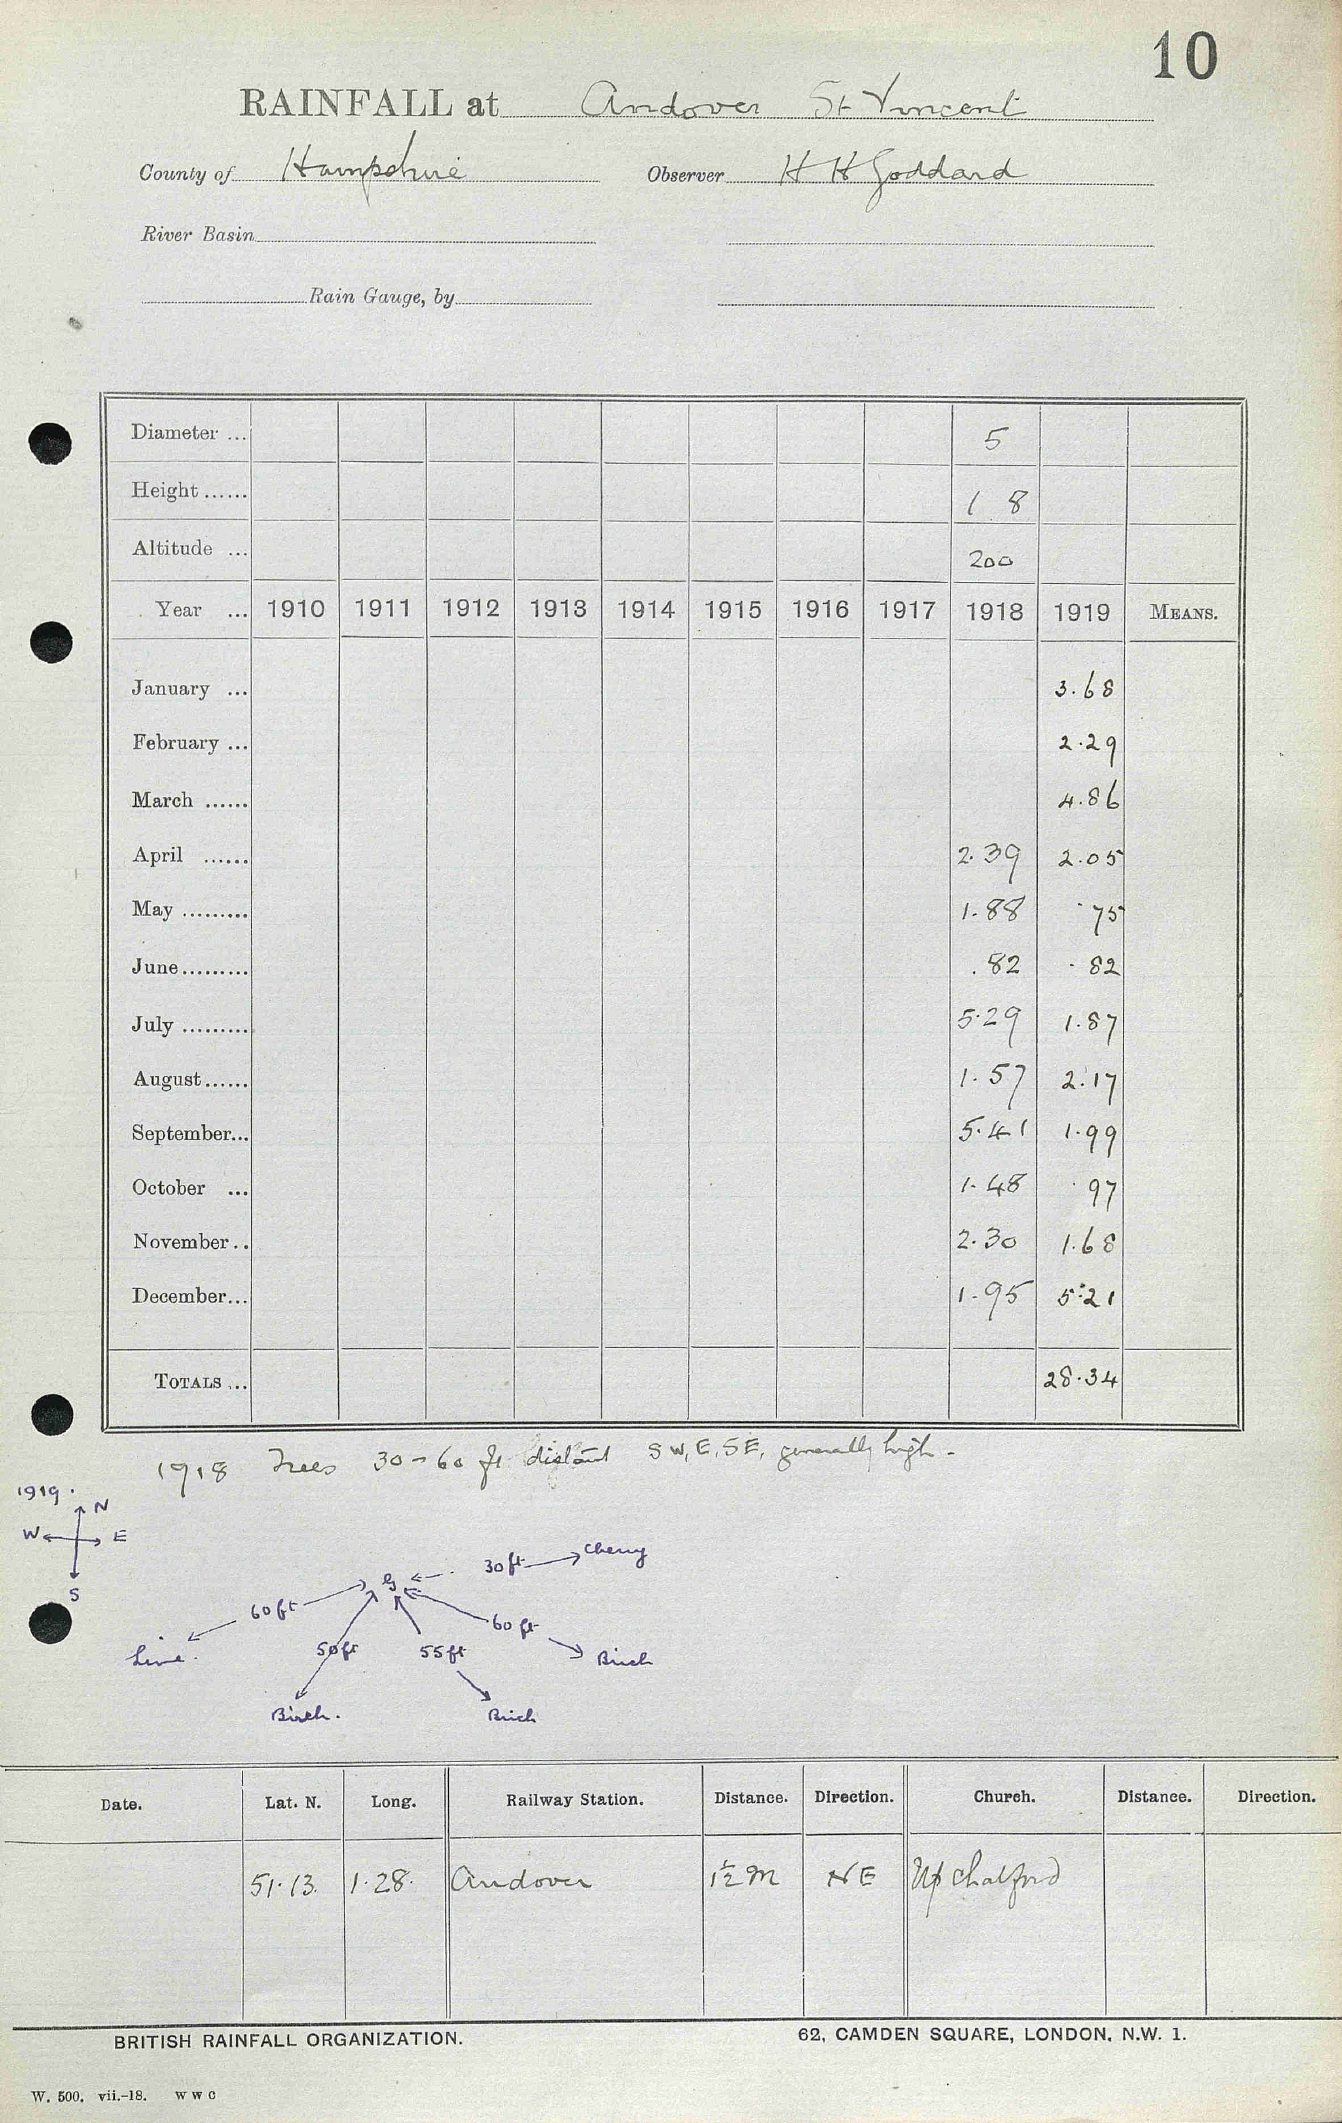 10
RAINFALL at Andover St Vincent
County of Hampshire Observer H H Goddard
River Basin
Rain Gauge, by
Diameter ... 5
Height ...... 1 8
Altitude ... 200
Year ... 1910 1911 1912 1913 1914 1915 1916 1917 1918 1919 MEANS.
January ... 3.68
February ... 2.29
March ...... 4.86
April ...... 2.39 2.05
May ......... 1.88 .75
June ......... .82 .82
July ......... 5.29 1.87
August ...... 1.57 2.17
September... 5.41 1.99
October ... 1.48 .97
November .. 2.30 1.68
December... 1.95 5.21
TOTALS ... 28.34
1918 Trees 30-60 ft distant SW, E, SE, generally high.
1919.
N
W E
S
30ft Cherry
G
60ft
60ft
Lime. 50ft 55ft Birch
Birch. Birch
Date. Lat. N. Long. Railway Station. Distance. Direction. Church. Distance. Direction.
51.13. 1.28. Andover 1½ M NE Up
BRITISH RAINFALL ORGANIZATION. 62, CAMDEN SQUARE, LONDON, N.W. 1.
W. 500. vii.-18. W W C